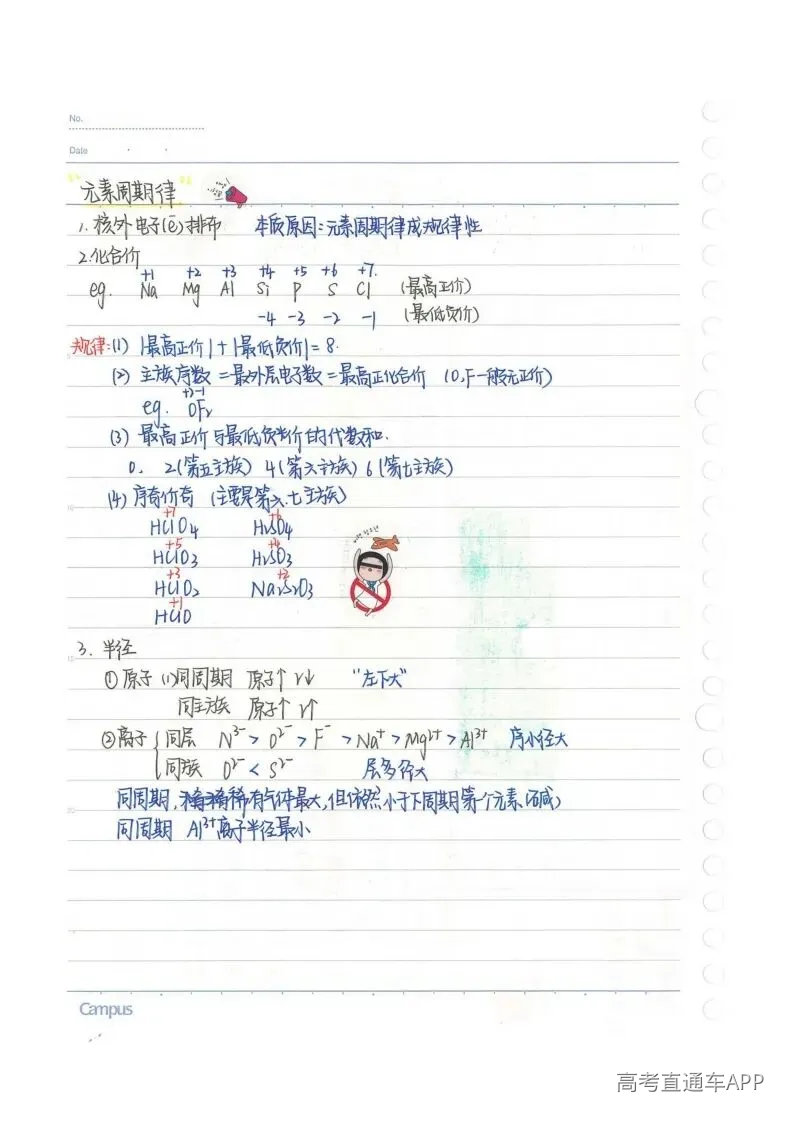 No.
Date
元素周期律
1. 核外电子(e̅)排布 本质原因:元素周期律成规律性
2.化合价
+1 +2 +3 +4 +5 +6 +7
eg. Na Mg Al Si P S Cl (最高正价)
-4 -3 -2 -1 (最低负价)
规律:(1) |最高正价|+|最低负价|=8.
(2) 主族序数=最外层电子数=最高正化合价 (O,F一般无正价)
+2 -1
eg. OF₂
(3) 最高正价与最低负价的代数和.
0. 2(第五主族) 4(第六主族) 6(第七主族)
(4) 序奇价奇 (主要是第六.七主族)
+7 +6
HClO₄ H₂SO₄
+5 +4
HClO₃ H₂SO₃
+3 +2
HClO₂ Na₂S₂O₃
+1
HClO
3. 半径
①原子 (1)同周期 原子↑ r↓ "左下大"
同主族 原子↑ r↑
②离子 { 同层 N³⁻ > O²⁻ > F⁻ > Na⁺ > Mg²⁺ > Al³⁺ 序小径大
同族 O²⁻ < S²⁻ 层多径大
同周期,稀有气体最大,但依然小于下周期第一个元素(碱)
同周期 Al³⁺离子半径最小
Campus
高考直通车APP